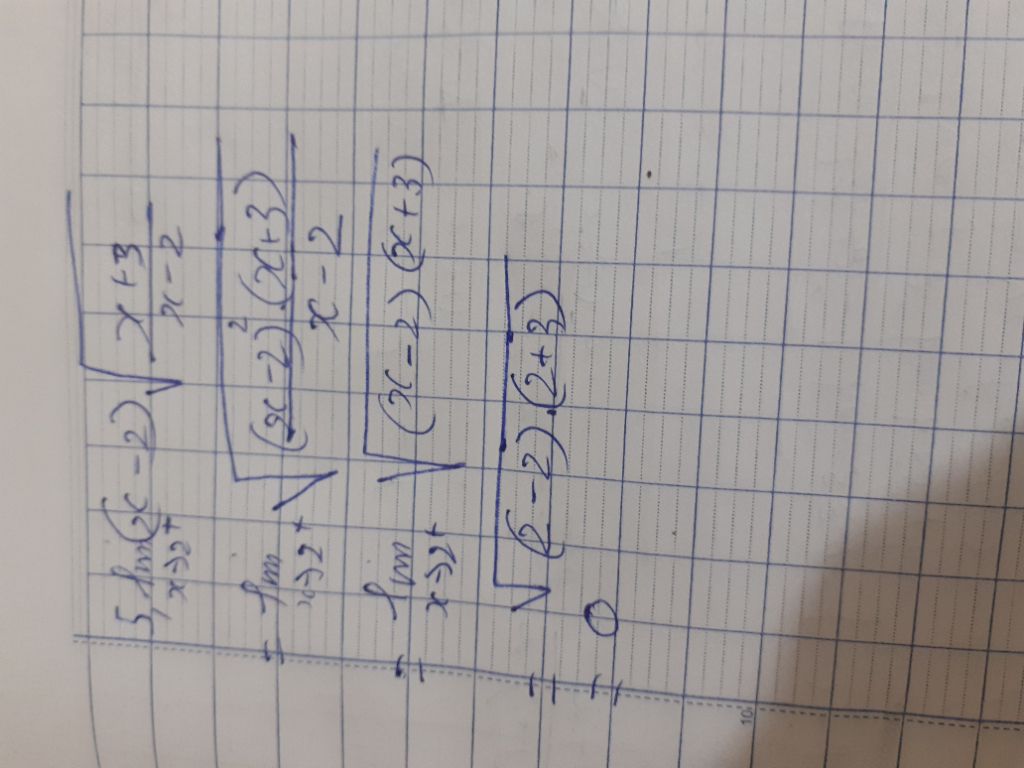 5, lim x→2⁺ (x - 2) √((x + 3)/(x - 2))
= lim x→2⁺ √(((x - 2)².(x + 3))/(x - 2))
= lim x→2⁺ √((x - 2)(x + 3))
= √((2 - 2).(2 + 3))
= 0
10